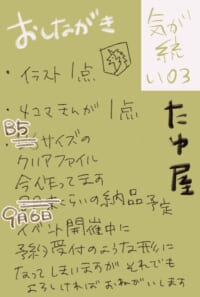 おしながき
気が
統
い03
・イラスト1点
・4コマまんが1点
たゆ屋
B5
・サイズの
クリアファイル
今作ってます
9月6日
くらいの納品予定
イベント開催中に
予約受付のような形に
なってしまいますがそれでも
よろしければおねがいします